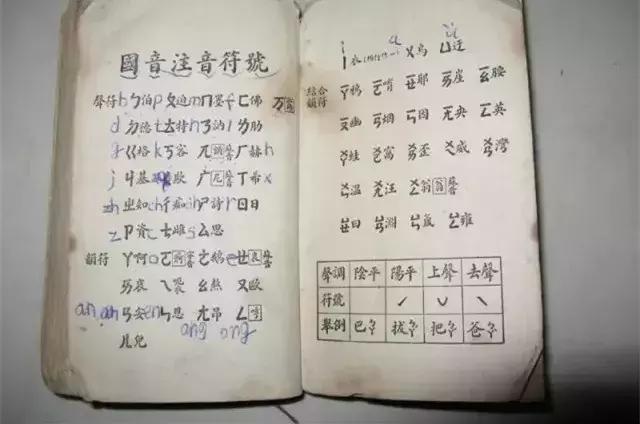 國音注音符號
聲符 b ㄅ伯 p ㄆ迫 m ㄇ墨 f ㄈ佛 万
d ㄉ德 t ㄊ特 n ㄋ訥 l ㄌ肋
g ㄍ格 k ㄎ容 兀 ㄏ赫 h
j ㄐ基 欺 广 ㄒ希 x
zh ㄓ知 ch ㄔ痴 sh ㄕ詩 r ㄖ日
z ㄗ資 c ㄘ雌 s ㄙ思
韻符 ㄚ啊 o ㄛ ㄜ鵝 e ㄝ
ㄞ哀 ㄟ ㄠ熬 ㄡ歐
an an ㄢ安 en ㄣ恩 ㄤ昂 ㄥ
ang eng
ㄦ兒
i 衣 ㄨ烏 ㄩ迂
結合韻符 ㄧㄚ鴉 ㄧㄛ唷 ㄧㄝ耶 ㄧㄞ崖 ㄧㄠ腰
ㄧㄡ幽 ㄧㄢ烟 ㄧㄣ因 ㄧㄤ央 ㄧㄥ英
ㄨㄚ蛙 ㄨㄛ窩 ㄨㄞ歪 ㄨㄟ威 ㄨㄢ灣
ㄨㄣ温 ㄨㄤ汪 ㄨㄥ翁
ㄩㄝ曰 ㄩㄢ淵 ㄩㄣ氳 ㄩㄥ雍
聲調 陰平 陽平 上聲 去聲
符號 ˊ ˇ ˋ
舉例 巴ㄅㄚ 拔ㄅㄚˊ 把ㄅㄚˇ 爸ㄅㄚˋ